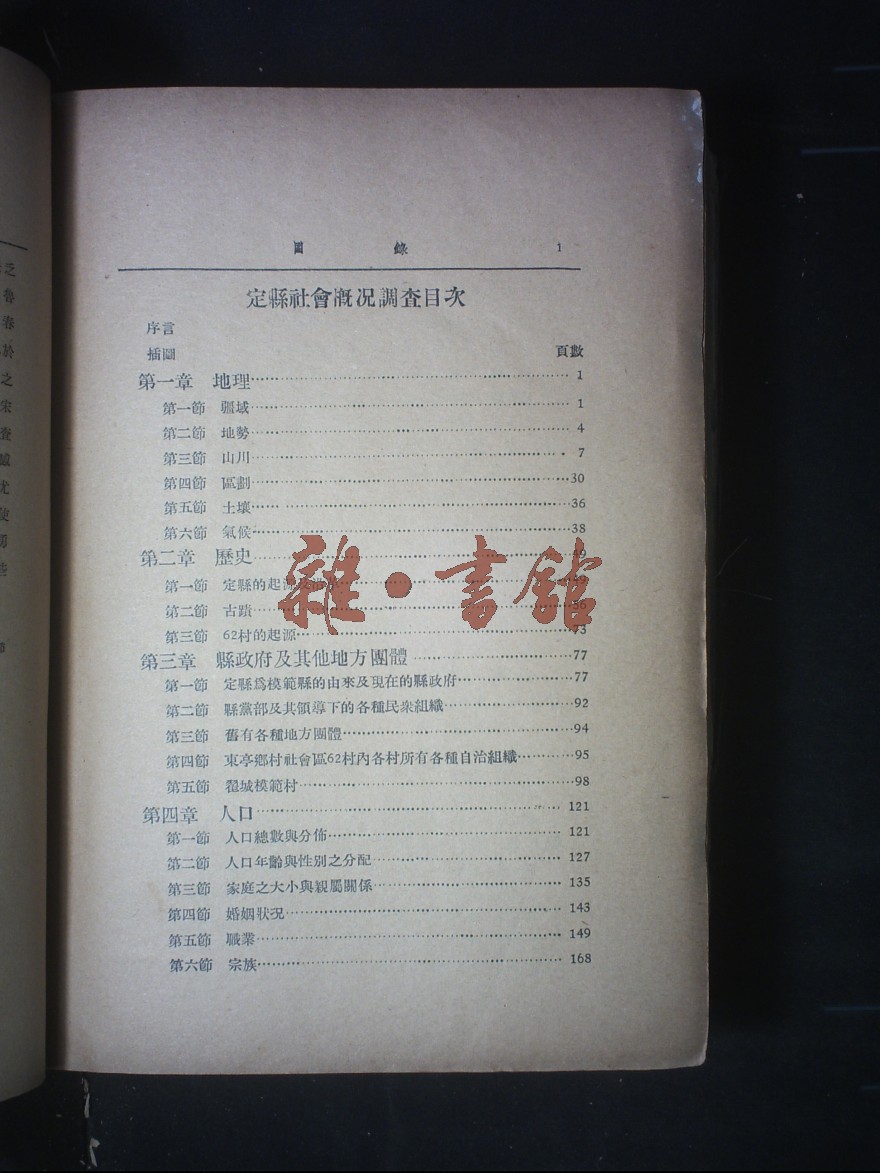 目 錄 1
定縣社會概況調查目次
序言
插圖 頁數
第一章 地理 1
第一節 疆域 1
第二節 地勢 4
第三節 山川 7
第四節 區劃 30
第五節 土壤 36
第六節 氣候 38
第二章 歷史 49
第一節 定縣的起源及沿革 49
第二節 古蹟 56
第三節 62村的起源 73
第三章 縣政府及其他地方團體 77
第一節 定縣爲模範縣的由來及現在的縣政府 77
第二節 縣黨部及其領導下的各種民衆組織 92
第三節 舊有各種地方團體 94
第四節 東亭鄉村社會區62村內各村所有各種自治組織 95
第五節 翟城模範村 98
第四章 人口 121
第一節 人口總數與分佈 121
第二節 人口年齡與性別之分配 127
第三節 家庭之大小與親屬關係 135
第四節 婚姻狀況 143
第五節 職業 149
第六節 宗族 168
雜·書館
乏
魯
春
於
之
宋
查
尤